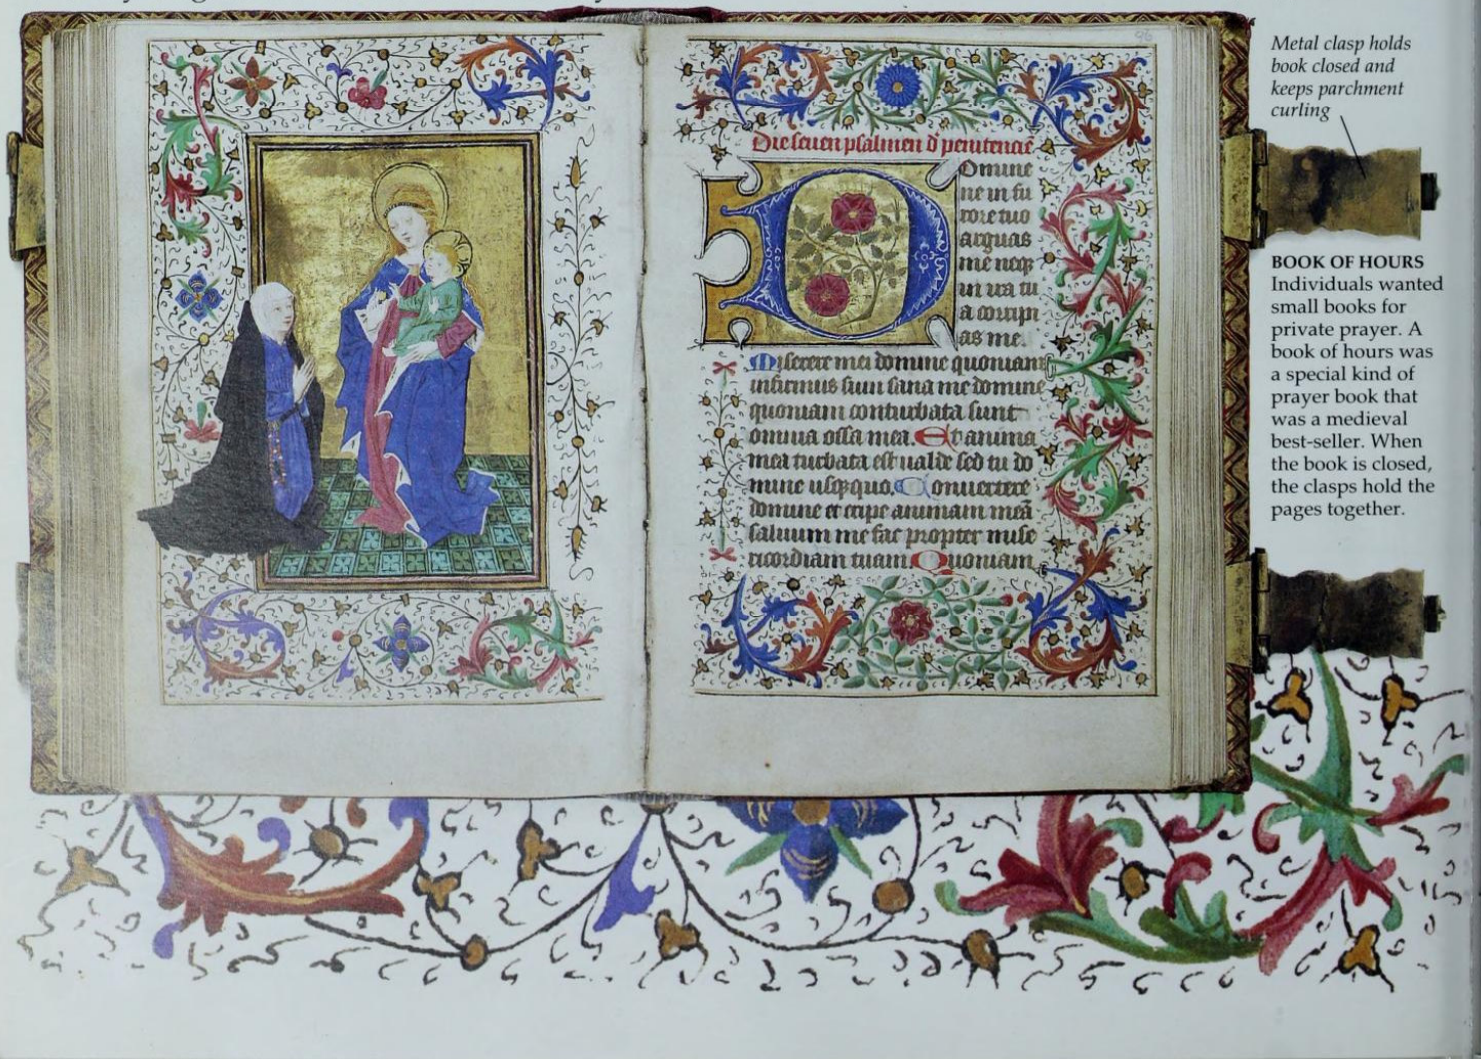 96
Die seuen psalmen d penitencie
Domine
ne in fu
rore tuo
arguas
me neqz
in ira tu
a corripi
as me.
Miserere mei domine quoniam
infirmus sum sana me domine
quoniam conturbata sunt
omnia ossa mea. Et anima
mea turbata est ualde sed tu do
mine usqzquo. Conuertere
domine et eripe animam meā
saluum me fac propter mise
ricordiam tuam. Quoniam
Metal clasp holds
book closed and
keeps parchment
curling
BOOK OF HOURS
Individuals wanted
small books for
private prayer. A
book of hours was
a special kind of
prayer book that
was a medieval
best-seller. When
the book is closed,
the clasps hold the
pages together.